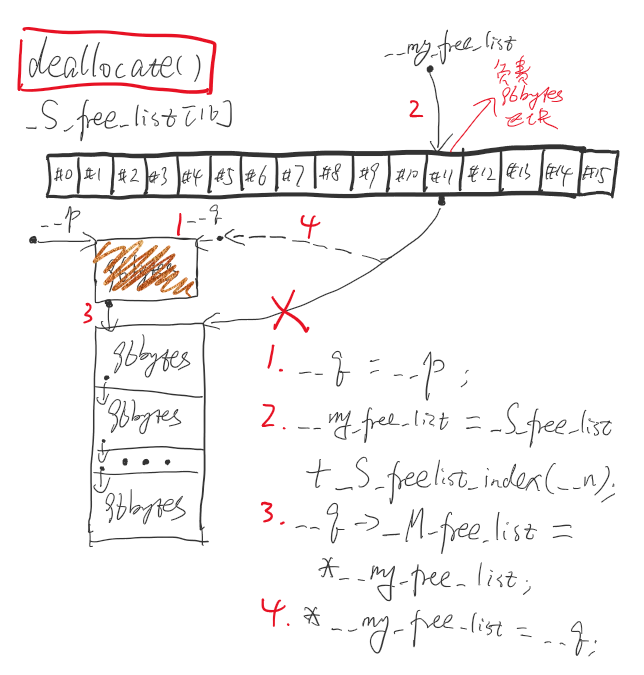 deallocate()
_S_free_list[16]
__my_free_list
负责
96bytes
区块
2
#0 #1 #2 #3 #4 #5 #6 #7 #8 #9 #10 #11 #12 #13 #14 #15
__p
1
__q
4
3
96bytes
96bytes
• • •
96bytes
1. __q = __p;
2. __my_free_list = _S_free_list
+ _S_freelist_index(__n);
3. __q -> _M_free_list =
*__my_free_list;
4. *__my_free_list = __q;